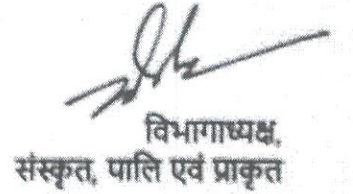 विभागाध्यक्ष,
संस्कृत, पालि एवं प्राकृत